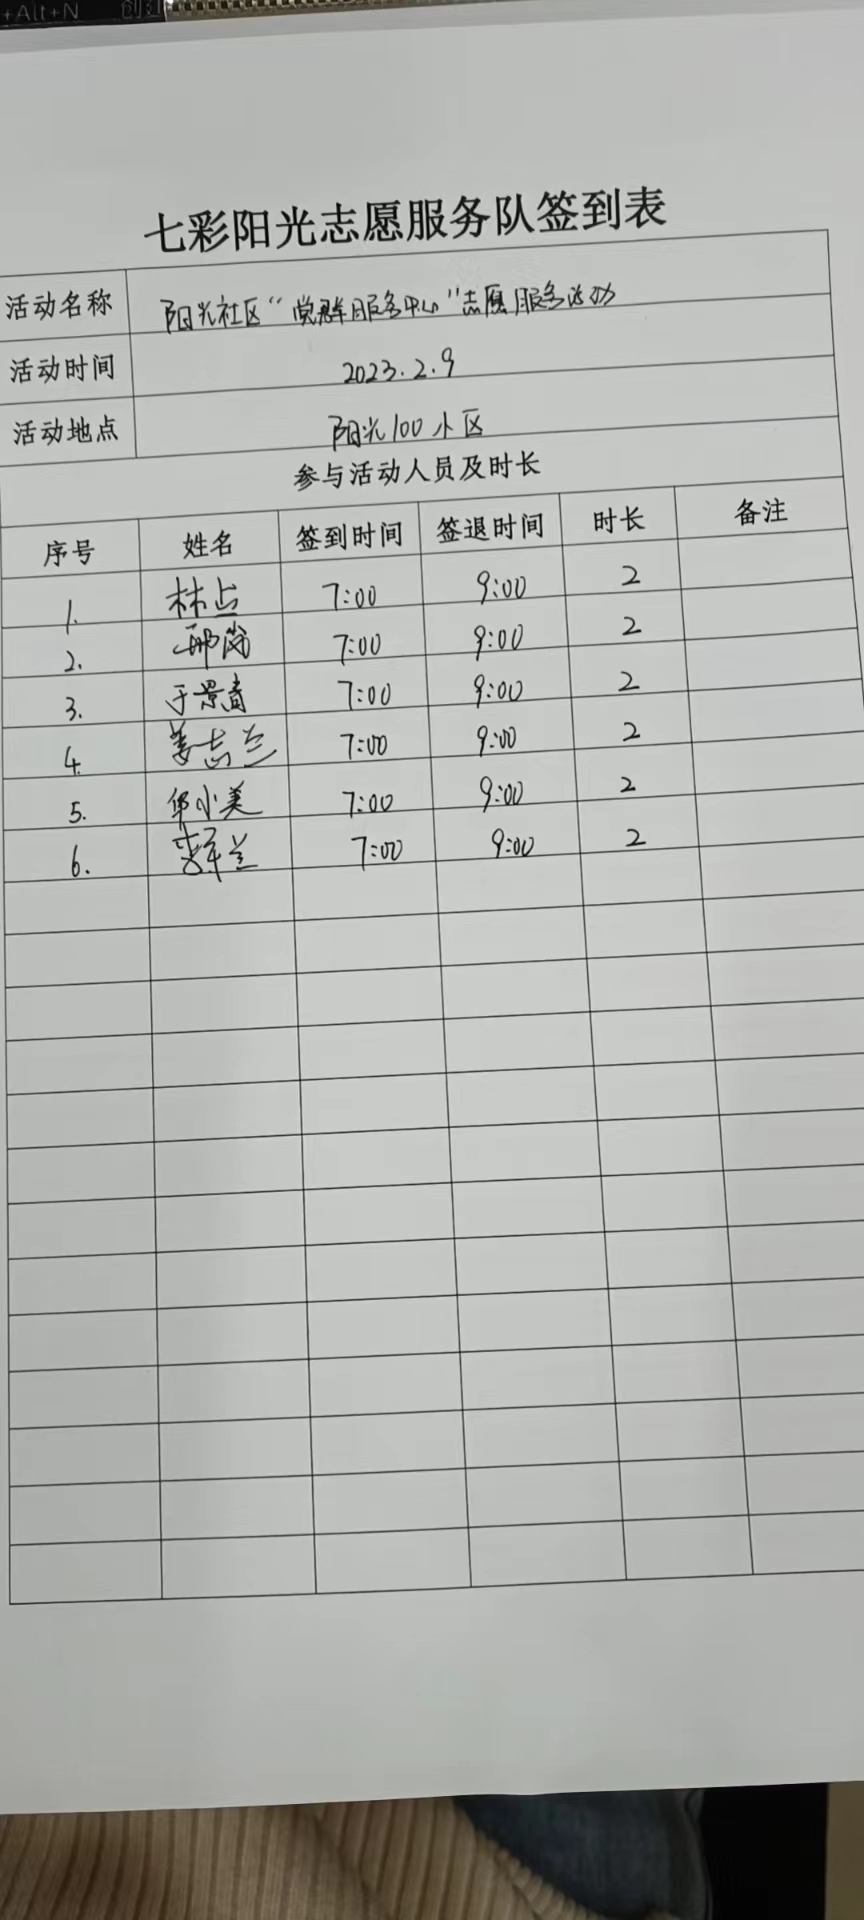 +Alt+N 创建
七彩阳光志愿服务队签到表
活动名称 阳光社区“党群服务中心”志愿服务活动
活动时间 2023.2.9
活动地点 阳光100小区
参与活动人员及时长
序号 姓名 签到时间 签退时间 时长 备注
1. 林占 7:00 9:00 2
2. 7:00 9:00 2
3. 于景春 7:00 9:00 2
4. 姜志兰 7:00 9:00 2
5. 小美 7:00 9:00 2
6. 李军兰 7:00 9:00 2